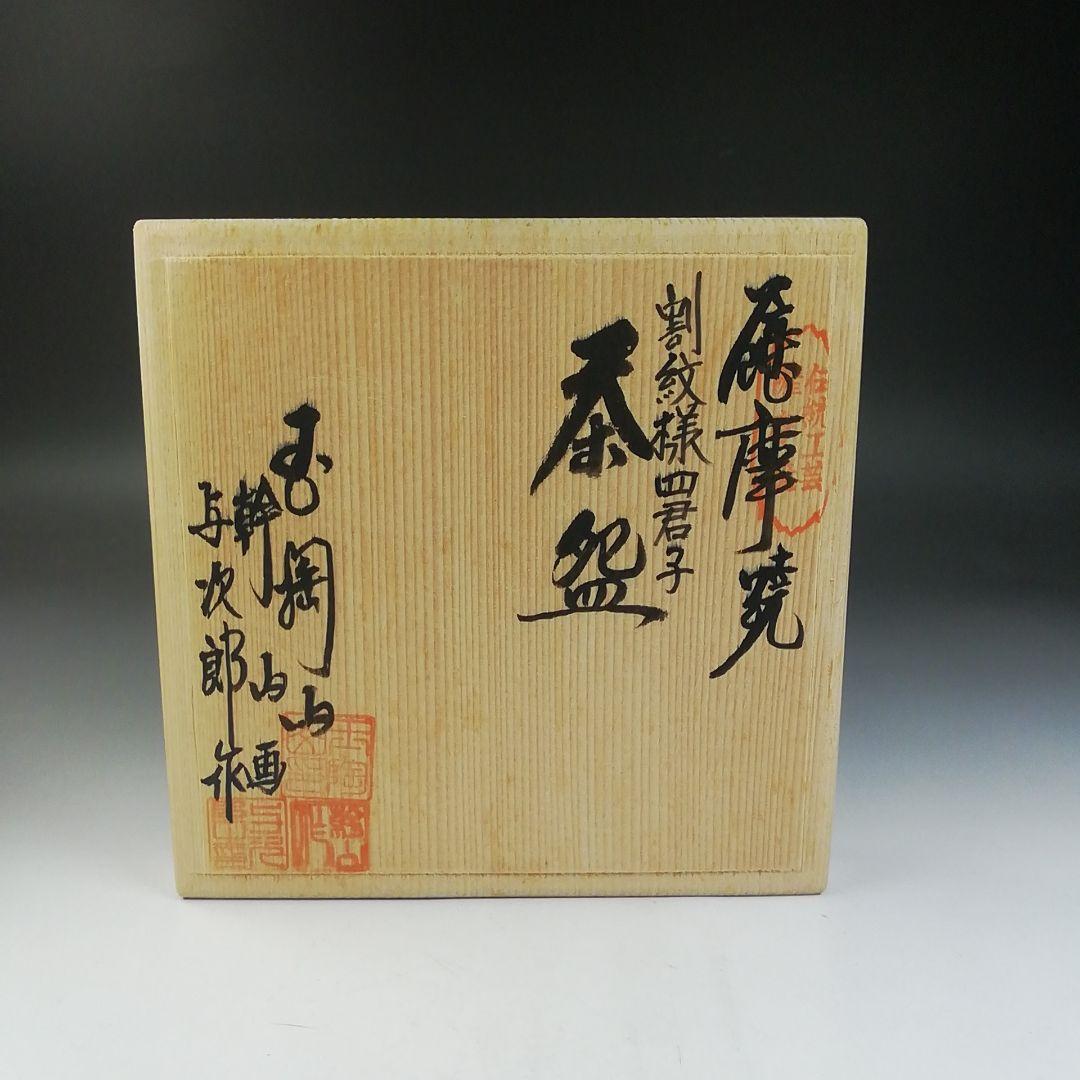 薩摩焼
割紋様四君子
茶盌
玉陶山
幹山画
与次郎作
伝統工芸